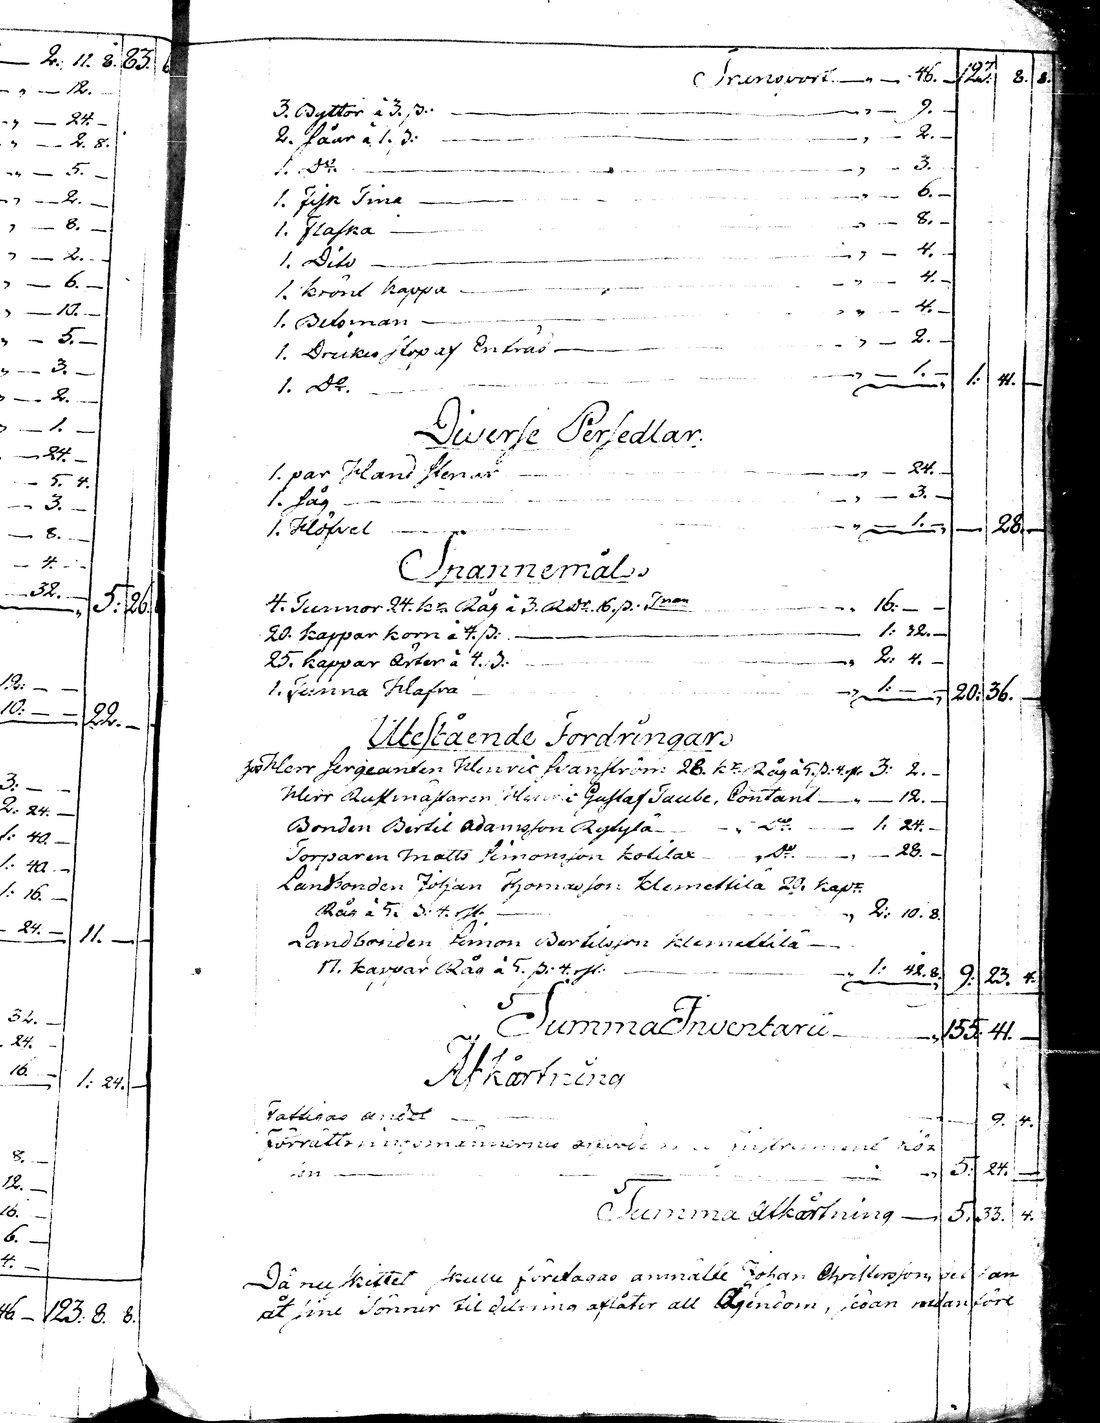 2. 11. 8. 63. 6
12.
24.
2. 8.
5.
2.
8.
2.
6.
10.
5.
3.
2.
1.
24.
5. 4.
3.
8.
4.
32. 5: 26.
12:
10: 22.
3:
2: 24.
1: 40.
1: 40.
1: 16.
24. 11.
32.
24.
16. 1: 24.
8.
12.
16.
6.
4.
46. 123. 8. 8.
Transport 46. 123. 8. 8.
3. Byttor à 3. ß: 9.
2. Såar à 1. ß: 2.
1. Do. 3.
1. Fisk Tina 6.
1. Flaska 8.
1. Dito 4.
1. krönt kappa 4.
1. Betsman 4.
1. Drickes stop af Enträd 2.
1. Do. 1. 1: 41.
Diverse Persedlar.
1. par Hand stenar 24.
1. Såg 3.
1. Höfvel 1. 28.
Spannemål
4. Tunnor 24. kr Råg à 3. RDr. 16. ß. Tnan 16:
20. kappar korn à 4. ß: 1: 32.
25. kappar Ärter à 4. ß: 2: 4.
1. Tunna Hafra 1: 20: 36.
Utestående Fordringar
hos Herr Sergeanten Henric Svanström 28. kr. Råg à 5. ß. 4. rst. 3: 2.
Herr Rustmästaren Henric Gustaf Taube, Contant 12.
Bonden Bertil Adamsson Rytylä Do. 1: 24.
Torparen Matts Simonsson kotilax Do. 28.
Landbonden Johan Thomasson Klemettilä 20. kapr
Råg à 5. ß: 4. rst. 2: 10. 8.
Landbonden Simon Bertilsson Klemettilä
17. kappar Råg à 5. ß: 4. rst. 1: 42. 8. 9: 23. 4.
Summa Inventarii 155: 41.
Afkårtning
Fattigas andel 9. 4.
Förrättningsmännernes arfvode Instrument lös
en 5: 24.
Summa Afkårtning 5. 33. 4.
Då nu skiftet skulle företagas anmälte Johan Christersson, det han
åt sine Söner til delning aflåter all Egendom, sedan nedanföre